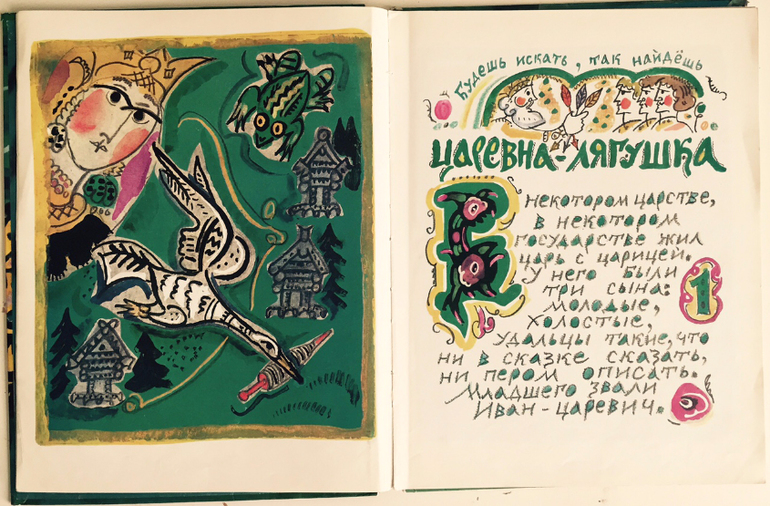 Будешь искать, так найдёшь
ЦАРЕВНА-ЛЯГУШКА
В некотором царстве,
в некотором
государстве жил
царь с царицей.
У него были
три сына:
молодые,
холостые,
удальцы такие, что
ни в сказке сказать,
ни пером описать.
Младшего звали
Иван-царевич.
1